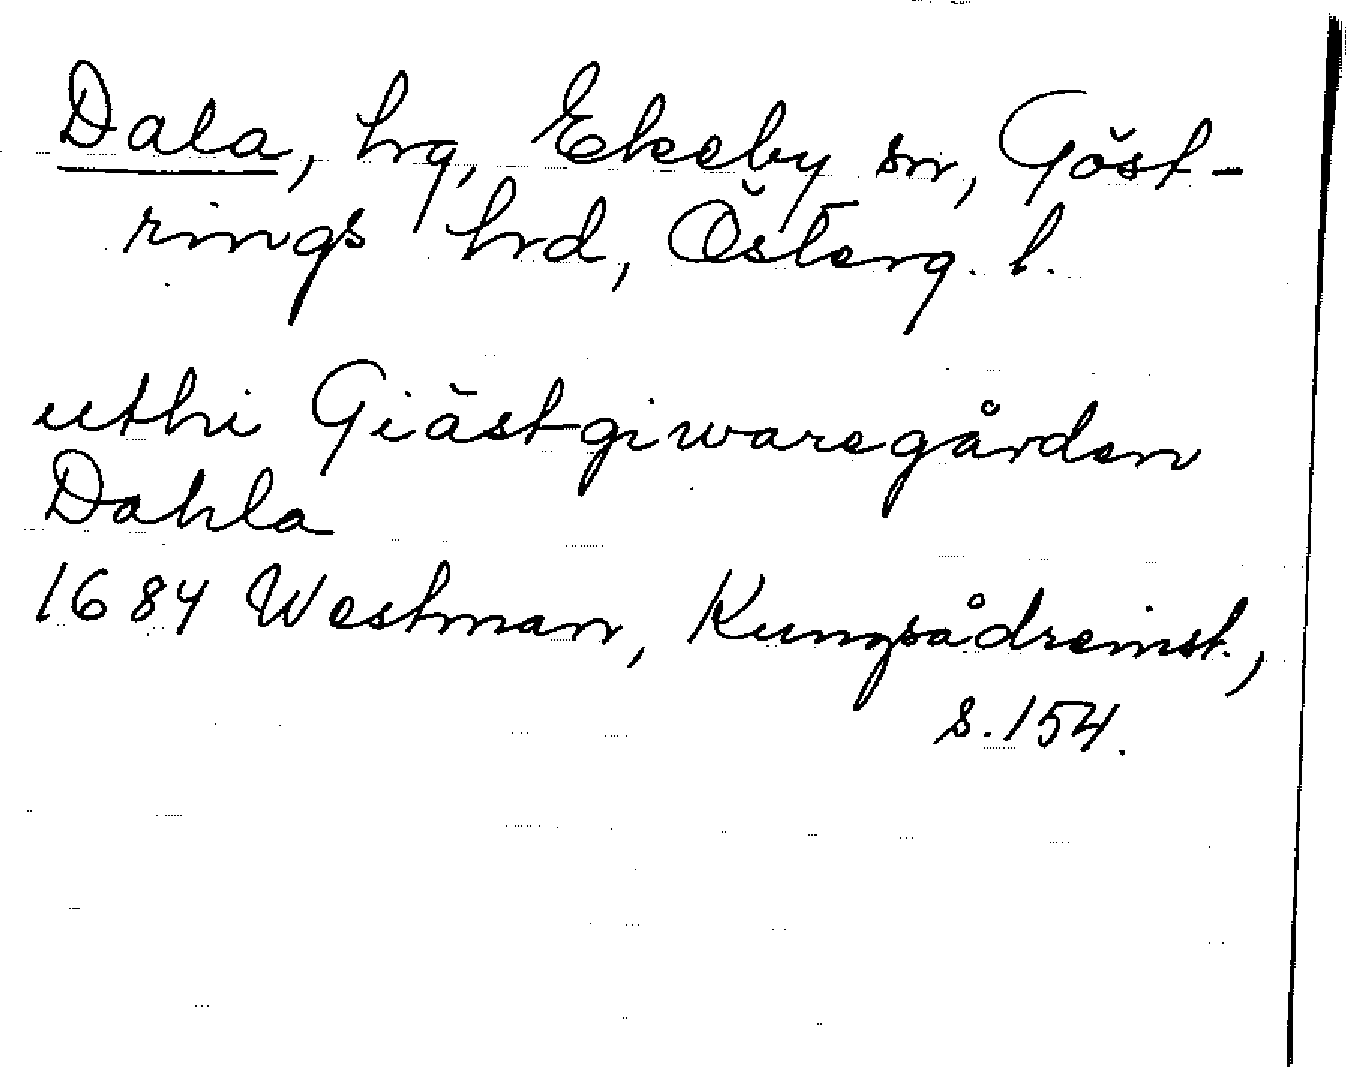 Dala, hrg, Ekeby sn, Göst-
rings hrd, Österg. l.
uthi Giästgiwaregården
Dahla
1684 Westman, Kungsådreinst.,
s. 154.